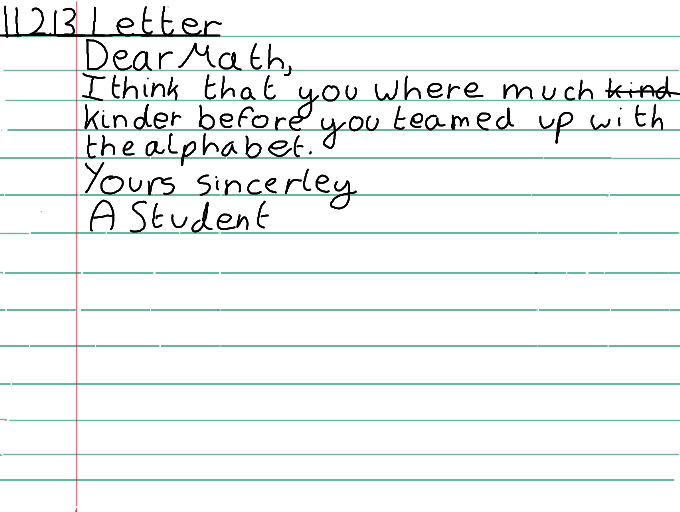 11213 Letter
Dear Math,
I think that you where much kind
kinder before you teamed up with
the alphabet.
Yours sincerley
A Student